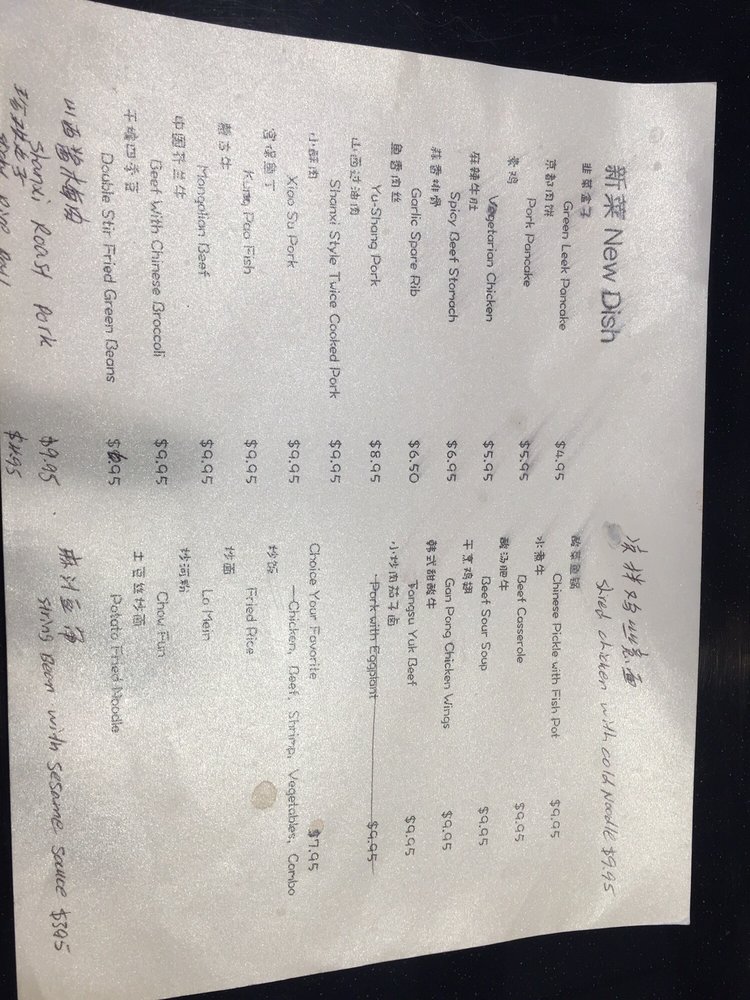 新菜 New Dish
韭菜盒子
Green Leek Pancake $4.95
京都肉饼
Pork Pancake $5.95
素鸡
Vegetarian Chicken $5.95
麻辣牛肚
Spicy Beef Stomach $6.95
蒜香排骨
Garlic Spare Rib $6.50
鱼香肉丝
Yu-Shang Pork $8.95
山西过油肉
Shanxi Style Twice Cooked Pork $9.95
小酥肉
Xiao Su Pork $9.95
宫保鱼丁
Kung Pao Fish $9.95
蒙古牛
Mongolian Beef $9.95
中国芥兰牛
Beef With Chinese Broccoli $9.95
干煸四季豆
Double Stir Fried Green Beans $6.95
山西酱梅肉
Shanxi Roast Pork $9.95
$4.95
凉拌鸡丝凉面
Shred chicken with cold Noodle $9.95
酸菜鱼锅
Chinese Pickle with Fish Pot $9.95
水煮牛
Beef Casserole $9.95
酸汤肥牛
Beef Sour Soup $9.95
干烹鸡翅
Gan Pong Chicken Wings $9.95
韩式甜酸牛
Tangsu Yuk Beef $9.95
小炒肉茄子卤
Pork with Eggplant $9.95
Choice Your Favorite $7.95
—Chicken, Beef, Shrimp, Vegetables, Combo
炒饭
Fried Rice
炒面
Lo Mein
炒河粉
Chow Fun
土豆丝炒面
Potato Fried Noodle
麻汁豆角
String Bean with sesame sauce $3.95